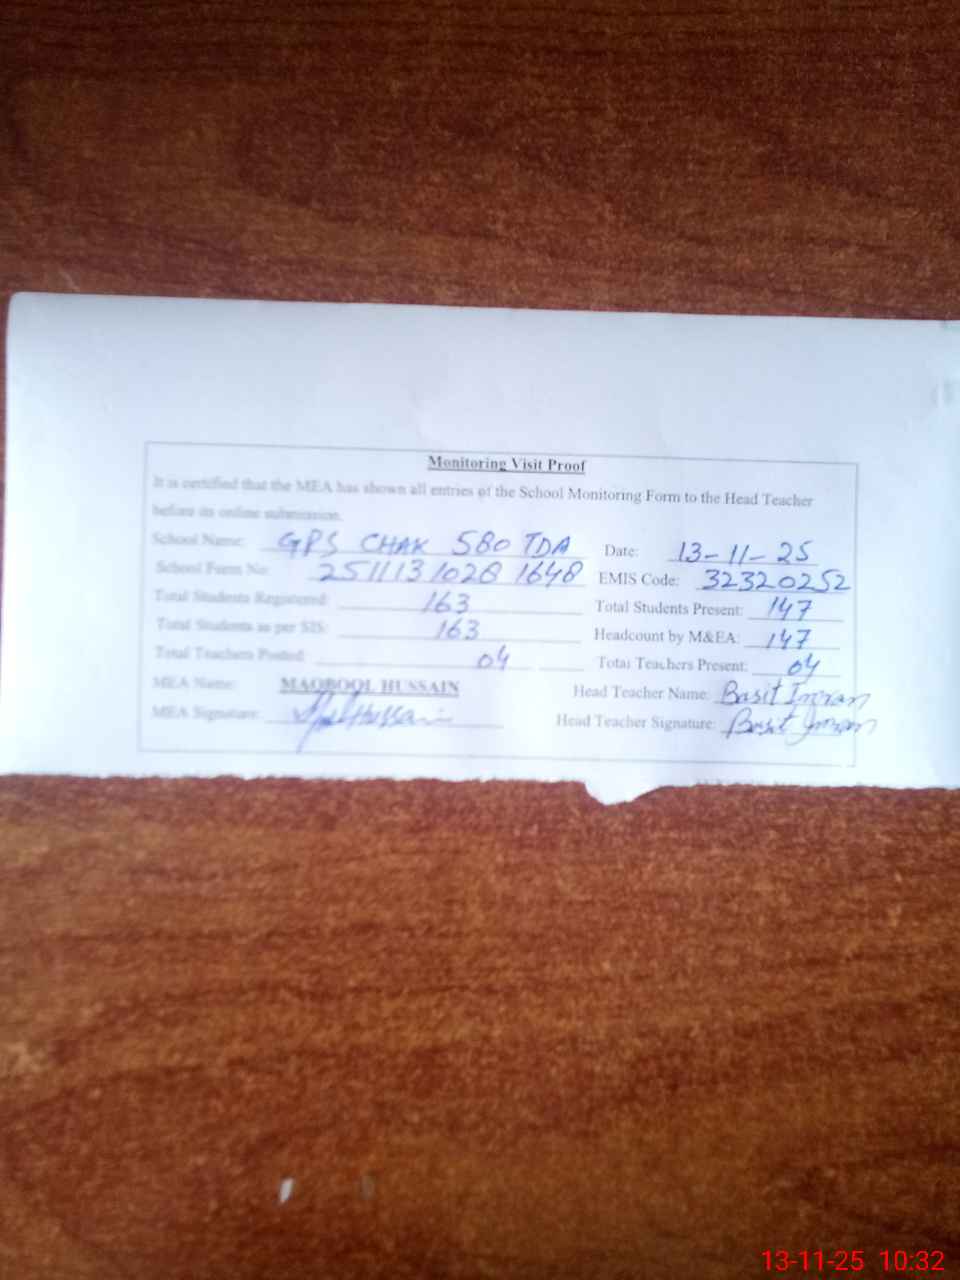 Monitoring Visit Proof
It is certified that the MEA has shown all entries of the School Monitoring Form to the Head Teacher
before its online submission.
School Name: GPS CHAK 580 TDA Date: 13-11-25
School Form No: 2511131028 1648 EMIS Code: 32320252
Total Students Registered: 163 Total Students Present: 147
Total Students as per SIS: 163 Headcount by M&EA: 147
Total Teachers Posted: 04 Total Teachers Present: 04
MEA Name: MAQBOOL HUSSAIN Head Teacher Name: Basit Imran
MEA Signature: Hussain Head Teacher Signature: Basit Imran
13-11-25 10:32